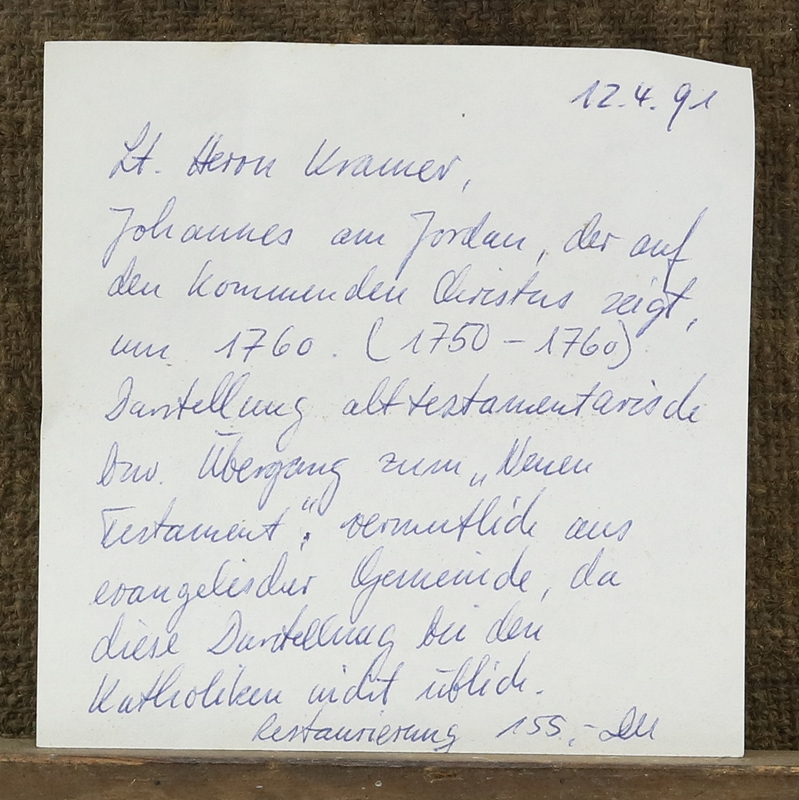 12.4.91
Lt. Herrn Kramer,
Johannes am Jordan, der auf
den kommenden Christus zeigt,
um 1760. (1750 - 1760)
Darstellung alttestamentarisch
bzw. Übergang zum „Neuen
Testament“; vermutlich aus
evangelischer Gemeinde, da
diese Darstellung bei den
Katholiken nicht üblich.
Restaurierung 155,- DM